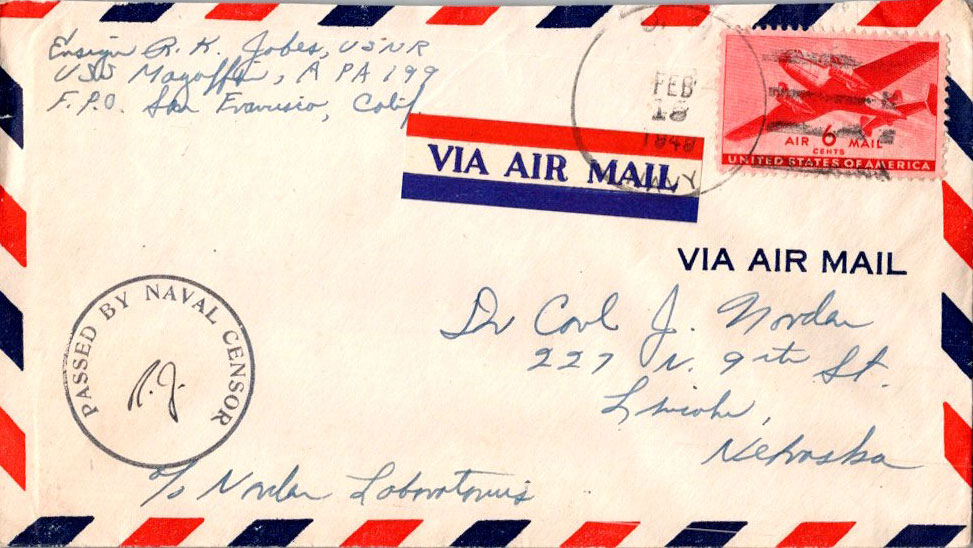 Ensign R. K. Jobes, USNR
USS Magoffin, APA 199
F.P.O. San Francisco, Calif
FEB
18
NAVY
AIR 6 MAIL
CENTS
UNITED STATES OF AMERICA
VIA AIR MAIL
VIA AIR MAIL
Dr Carl J. Norden
227 N. 9th St.
Lincoln,
Nebraska
PASSED BY NAVAL CENSOR
R.J.
c/o Norden Laboratories